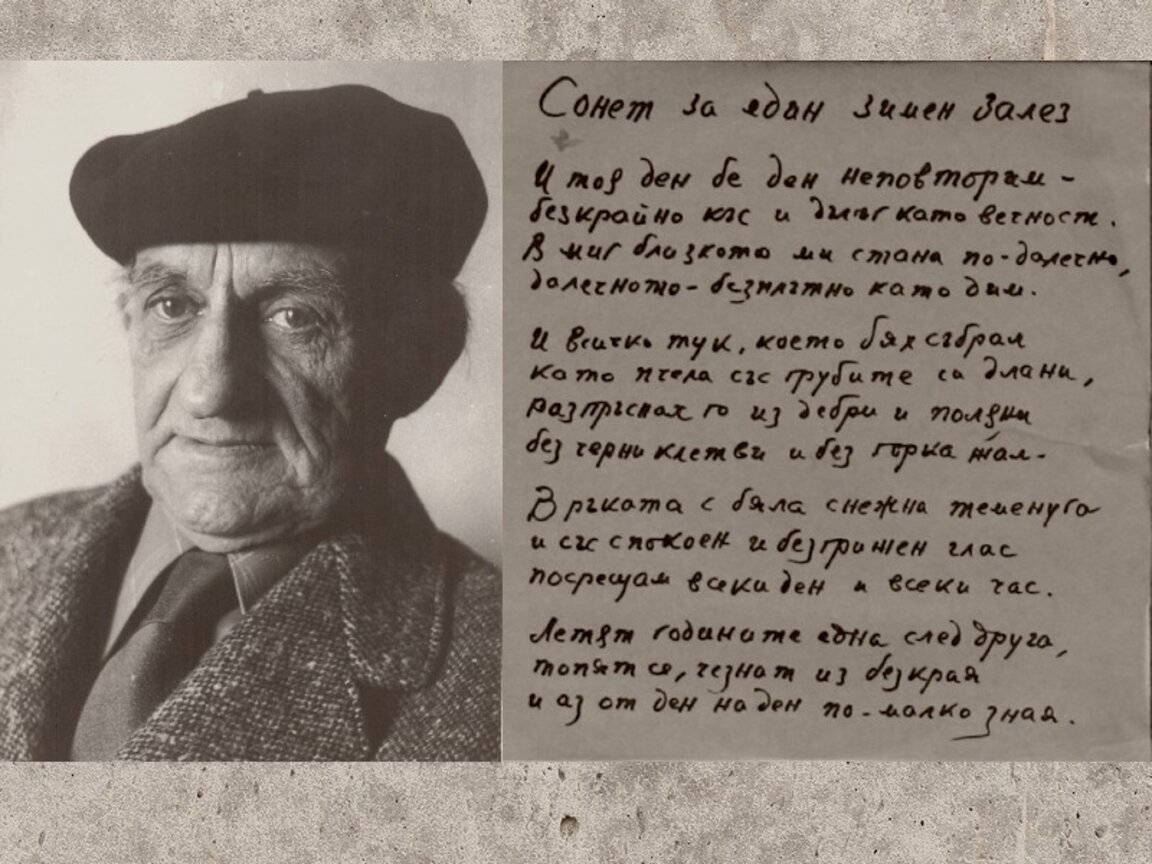 Сонет за един зимен залез
И тоя ден бе ден неповторим -
безкрайно къс и дълъг като вечност.
В миг близкото ми стана по-далечно,
далечното - безплътно като дим.
И всичко тук, което бях събрал
като пчела със грубите си длани,
разпръснах го из дебри и поляни
без черни клетви и без горка жал.
В ръката с бяла снежна теменуга
и със спокоен и безгрижен глас
посрещам всеки ден и всеки час.
Летят годините една след друга,
топят се, чезнат из безкрая
и аз от ден на ден по-малко зная.